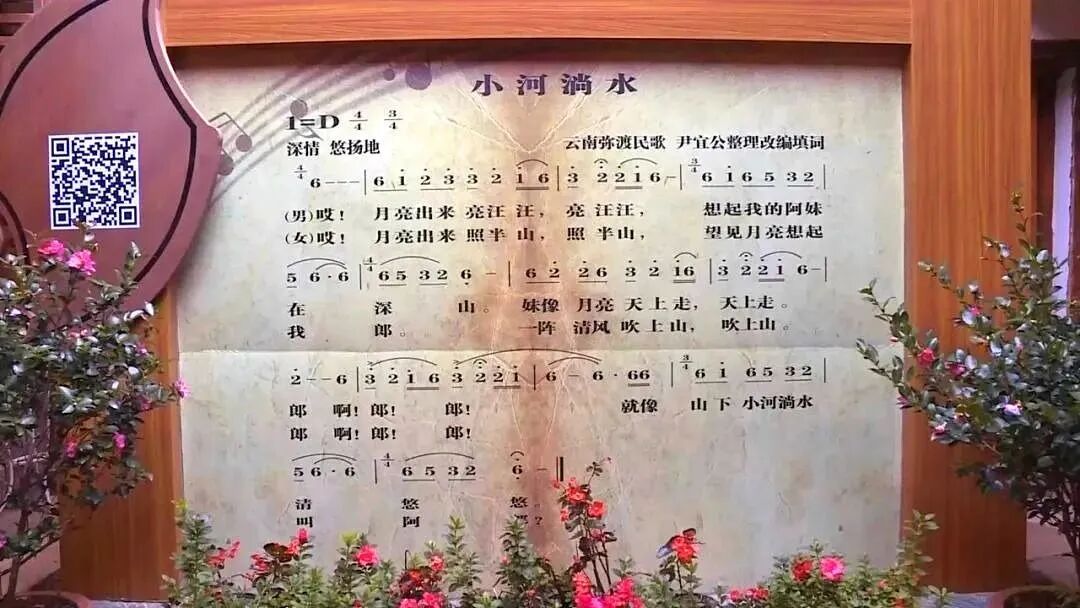 小河淌水
1=D 4/4 3/4
深情 悠扬地 云南弥渡民歌 尹宜公整理改编填词
4/4 6 - - - | 6 1 2 3 3 2 1 6 | 3 2 2 1 6 - | 3/4 6 1 6 5 3 2 |
(男)哎! 月亮出来 亮汪 汪, 亮 汪汪, 想起我的阿妹
(女)哎! 月亮出来 照半 山, 照 半山, 望见月亮想起
5 6 · 6 | 4/4 6 5 3 2 6 - | 6 2 2 6 3 2 1 6 | 3 2 2 1 6 - |
在 深 山。 妹像 月亮 天上走, 天上走。
我 郎。 一阵 清风 吹上山, 吹上山。
2 - - 6 | 3 2 1 6 3 2 2 1 | 6 - 6 · 6 6 | 3/4 6 1 6 5 3 2 |
郎 啊! 郎! 郎! 就像 山下 小河淌水
郎 啊! 郎! 郎!
5 6 · 6 | 4/4 6 5 3 2 6 - ‖
清 悠 悠。
叫 阿 ?